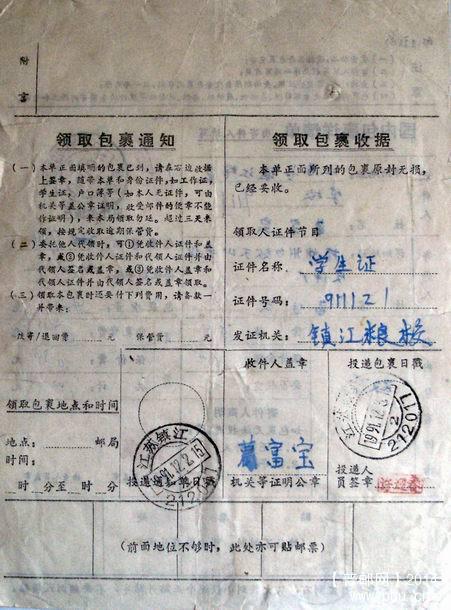 附
言
领取包裹通知
(一)本单正面填明的包裹已到，请在右边收据
上签章，随带本单和身份证件，如工作证，
学生证，户口簿等(如本人无证件，可由
机关等盖公章证明，收受邮件的便章不能
作证明)，来本局领取勿迟。超过三天来
领，按规定收取逾期保管费。
(二)委托他人代领时，可①凭收件人证件和盖
章，或②凭收件人证件和代领人证件并由
代领人签名或盖章，或③凭收件人盖章和
代领人证件并由代领人签名或盖章领取。
(三)领取本包裹时还要付下列费用，请备款一
并带来：
改寄/退回费 元 保管费 元
领取包裹收据
本单正面所列的包裹原封无损，
已经妥收。
领取人证件节目
证件名称：学生证
证件号码：911121
发证机关：镇江粮校
领取包裹地点和时间
地点： 邮局
时间：
时 分至 时 分
投递通知单日戳
江苏镇江
1991.12.2.15
212001
收件人盖章
葛富宝
机关等证明公章
投递包裹日戳
1991.12.2
212011
投递人
员签章
(前面地位不够时，此处亦可贴邮票)